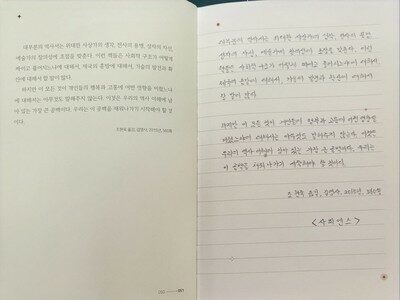 대부분의 역사서는 위대한 사상가의 생각, 전사의 용맹, 성자의 자선,
예술가의 창의성에 초점을 맞춘다. 이런 책들은 사회적 구조가 어떻게
짜이고 풀어지느냐에 대해서, 제국의 흥망에 대해서, 기술의 발견과 확
산에 대해서 할 말이 많다.
하지만 이 모든 것이 개인들의 행복과 고통에 어떤 영향을 미쳤느냐
에 대해서는 아무것도 말해주지 않는다. 이것은 우리의 역사 이해에 남
아 있는 가장 큰 공백이다. 우리는 이 공백을 채워나가기 시작해야 할 것
이다.
조현욱 옮김, 김영사, 2015년, 560쪽
대부분의 역사서는 위대한 사상가의 생각, 전사의 용맹,
성자의 자선, 예술가의 창의성에 초점을 맞춘다. 이런
책들은 사회적 구조가 어떻게 짜이고 풀어지느냐에 대해서,
제국의 흥망에 대해서, 기술의 발견과 확산에 대해서
할 말이 많다.
하지만 이 모든 것이 개인들의 행복과 고통에 어떤 영향을
미쳤느냐에 대해서는 아무것도 말해주지 않는다. 이것은
우리의 역사 이해에 남아 있는 가장 큰 공백이다. 우리는
이 공백을 채워나가기 시작해야 할 것이다.
조현욱 옮김, 김영사, 2015년, 560쪽
<사피엔스>